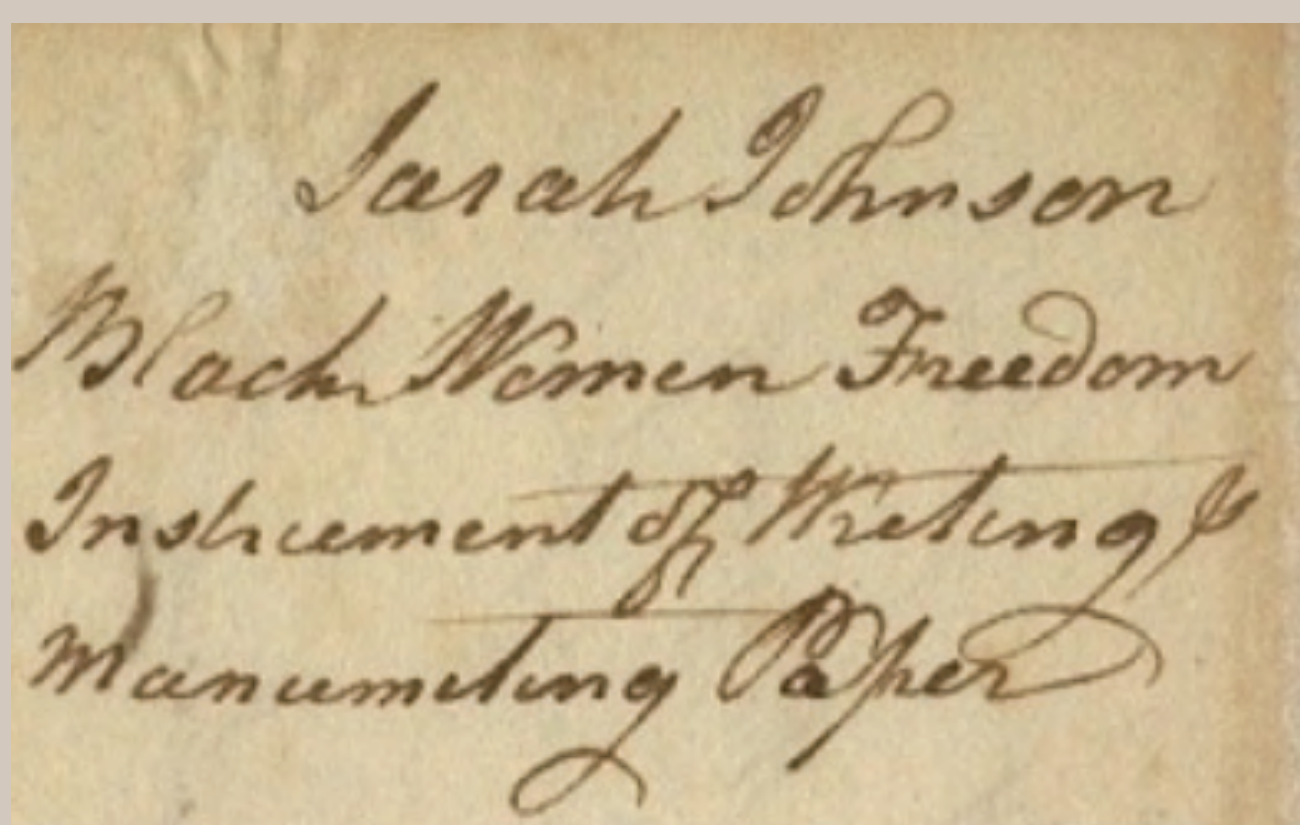 Sarah Johnson
Black Women Freedom
Instrument of Writing &
Manumiting Paper